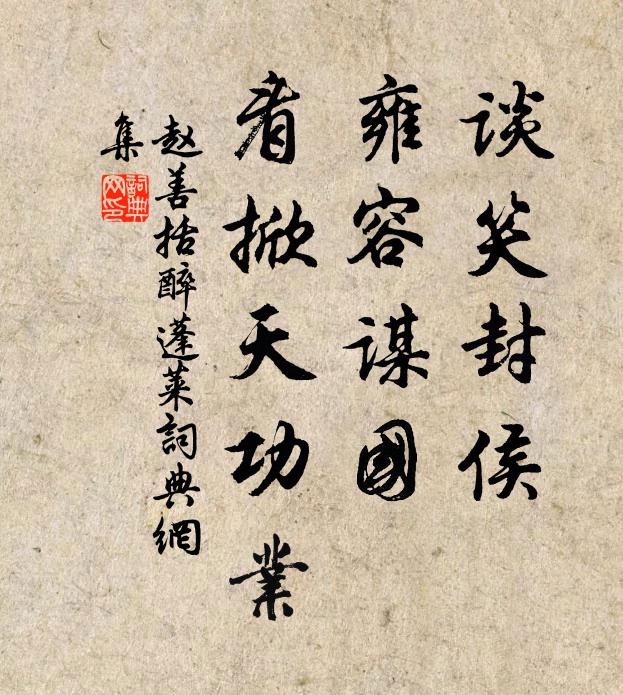 谈笑封侯
雍容谋國
看掀天功業
赵善括醉蓬莱詞典網
集
詞典网印